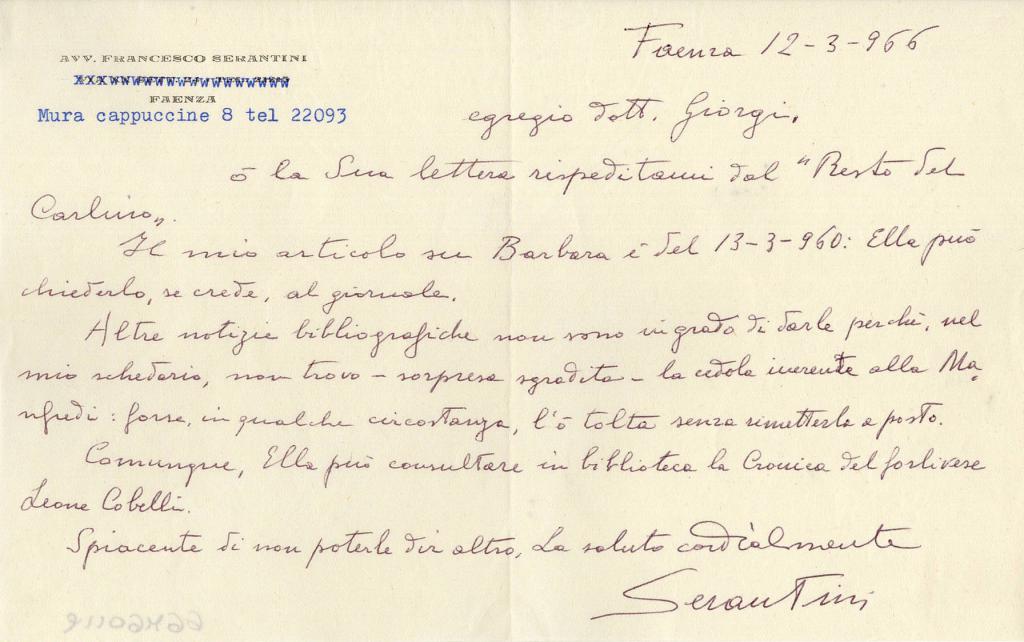 AVV. FRANCESCO SERANTINI
FAENZA
Mura cappuccine 8 tel 22093
Faenza 12-3-966
egregio dott. Giorgi,
ò la Sua lettera rispeditami dal "Resto del
Carlino„.
Il mio articolo su Barbara è del 13-3-960: Ella può
chiederlo, se crede, al giornale.
Altre notizie bibliografiche non sono in grado di darle perchè, nel
mio schedario, non trovo - sorpresa sgradita - la cedola inerente alla Ma-
nfredi: forse, in qualche circostanza, l'ò tolta senza rimetterla a posto.
Comunque, Ella può consultare in biblioteca la Cronica del forlivese
Leone Cobelli.
Spiacente di non poterle dir altro, La saluto cordialmente
Serantini